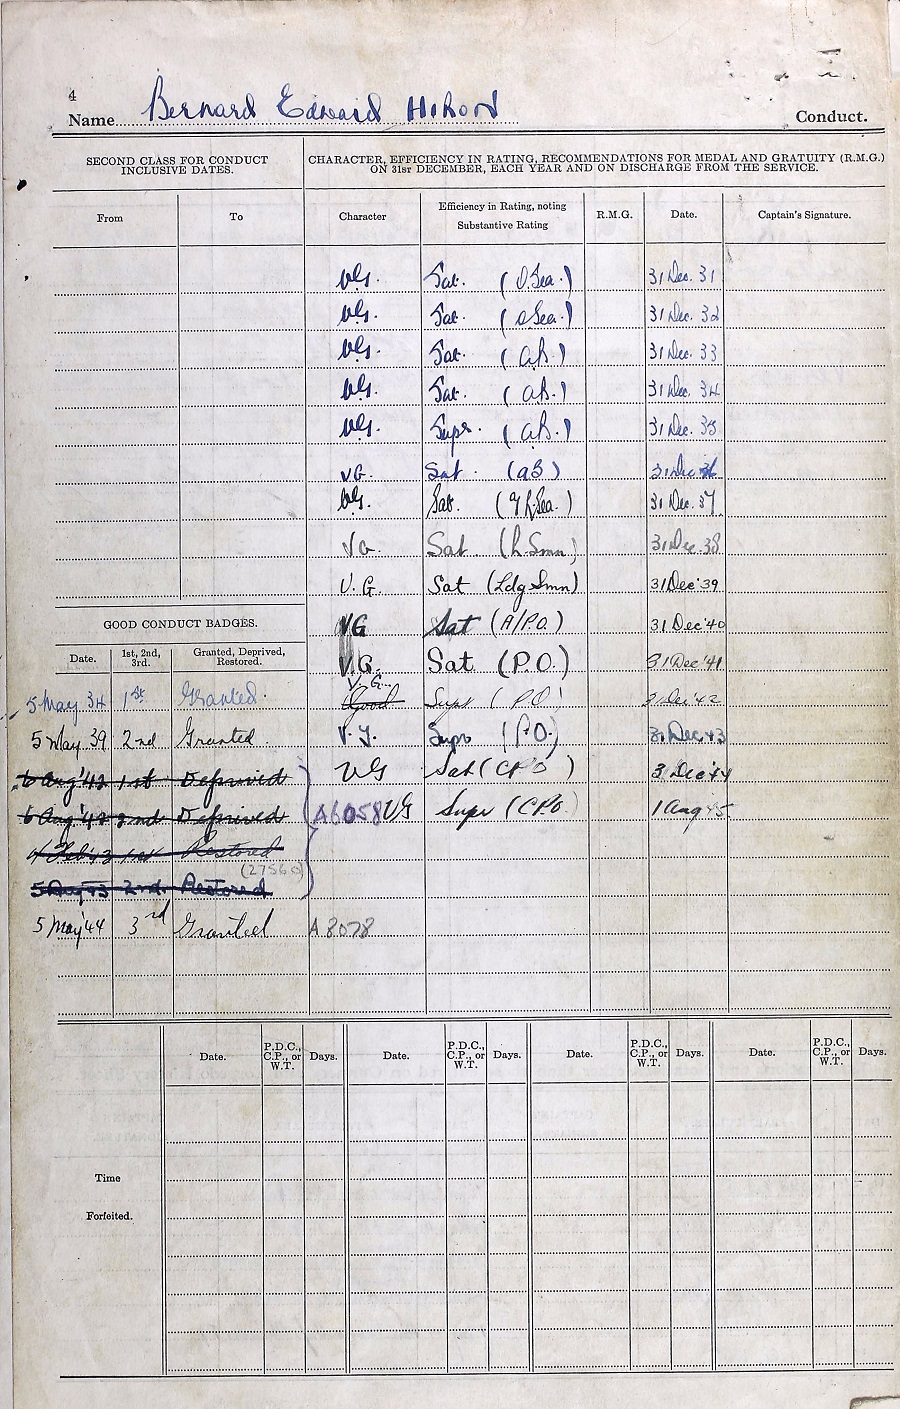 4
Name Bernard Edward Hiron Conduct.
SECOND CLASS FOR CONDUCT
INCLUSIVE DATES.
CHARACTER, EFFICIENCY IN RATING, RECOMMENDATIONS FOR MEDAL AND GRATUITY (R.M.G.)
ON 31st DECEMBER, EACH YEAR AND ON DISCHARGE FROM THE SERVICE.
From To Character Efficiency in Rating, noting Substantive Rating R.M.G. Date. Captain's Signature.
VG. Sat. (O.Sea.) 31 Dec. 31
VG. Sat. (O.Sea.) 31 Dec. 32
VG. Sat. (A.B.) 31 Dec. 33
VG. Sat. (A.B.) 31 Dec. 34
VG. Supr. (A.B.) 31 Dec. 35
VG. Sat. (AB) 31 Dec 36
VG. Sat. (L.Sea.) 31 Dec. 37
VG. Sat. (L.Smn) 31 Dec. 38
V.G. Sat (Ldg Smn) 31 Dec '39
VG Sat (A/P.O.) 31 Dec '40
V.G. Sat (P.O.) 31 Dec '41
V.G.
Good Supr (P.O.) 31 Dec '42
V.G. Supr (P.O.) 31 Dec 43
VG Sat (CPO) 31 Dec '44
VG Supr (C.P.O.) 1 Aug 45
GOOD CONDUCT BADGES.
Date. 1st, 2nd, 3rd. Granted, Deprived, Restored.
5 May 34 1st Granted.
5 May 39 2nd Granted
6 Aug '42 1st Deprived
6 Aug '42 2nd Deprived A6058
4 Feb '43 1st Restored
(27560)
5 Aug 43 2nd Restored
5 May '44 3rd Granted A 8078
Date. P.D.C., C.P., or W.T. Days. Date. P.D.C., C.P., or W.T. Days. Date. P.D.C., C.P., or W.T. Days. Date. P.D.C., C.P., or W.T. Days.
Time
Forfeited.